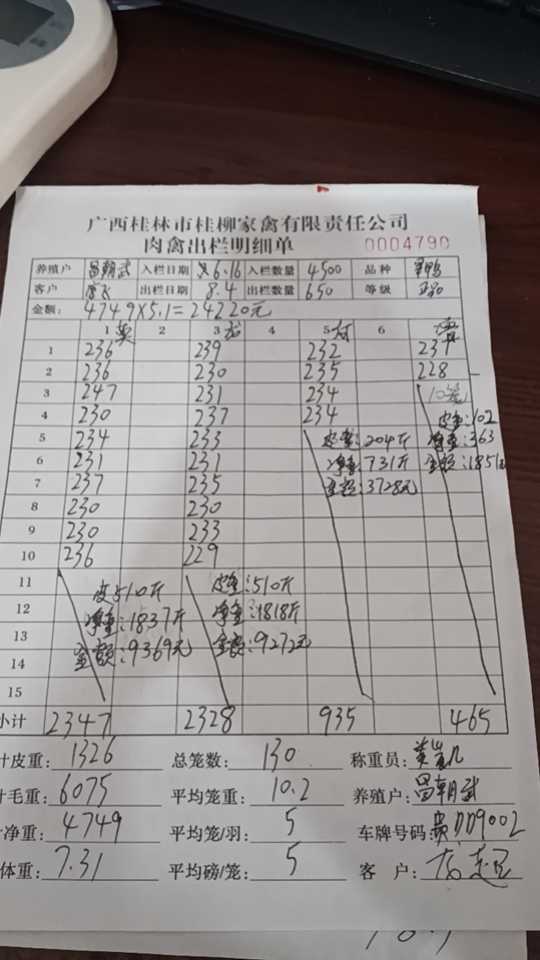 广西桂林市桂柳家禽有限责任公司
肉禽出栏明细单 0004790
养殖户 昌朝武 入栏日期 6.16 入栏数量 4500 品种
客户 入栏日期 8.4 出栏数量 650 等级 正品
金额: 4749×5.1=24220元
1 2 3 5 6
1 236 239 232 237
2 236 230 235 228
3 247 231 234 10笼
4 230 237 234 皮重:102
5 234 233 皮重:204斤 净重:363
6 231 231 净重:731斤 金额:1851元
7 237 235 金额:3728元
8 230 230
9 230 233
10 236 229
11 皮510斤 皮重:510斤
12 净重:1837斤 净重:1818斤
13 金额:9369元 金额:9272元
14
15
小计 2347 2328 935 465
计皮重: 1326 总笼数: 130 称重员:
计毛重: 6075 平均笼重: 10.2 养殖户: 昌朝武
净重: 4749 平均笼/羽: 5 车牌号码: 贵DD9002
体重: 7.31 平均磅/笼: 5 客 户: